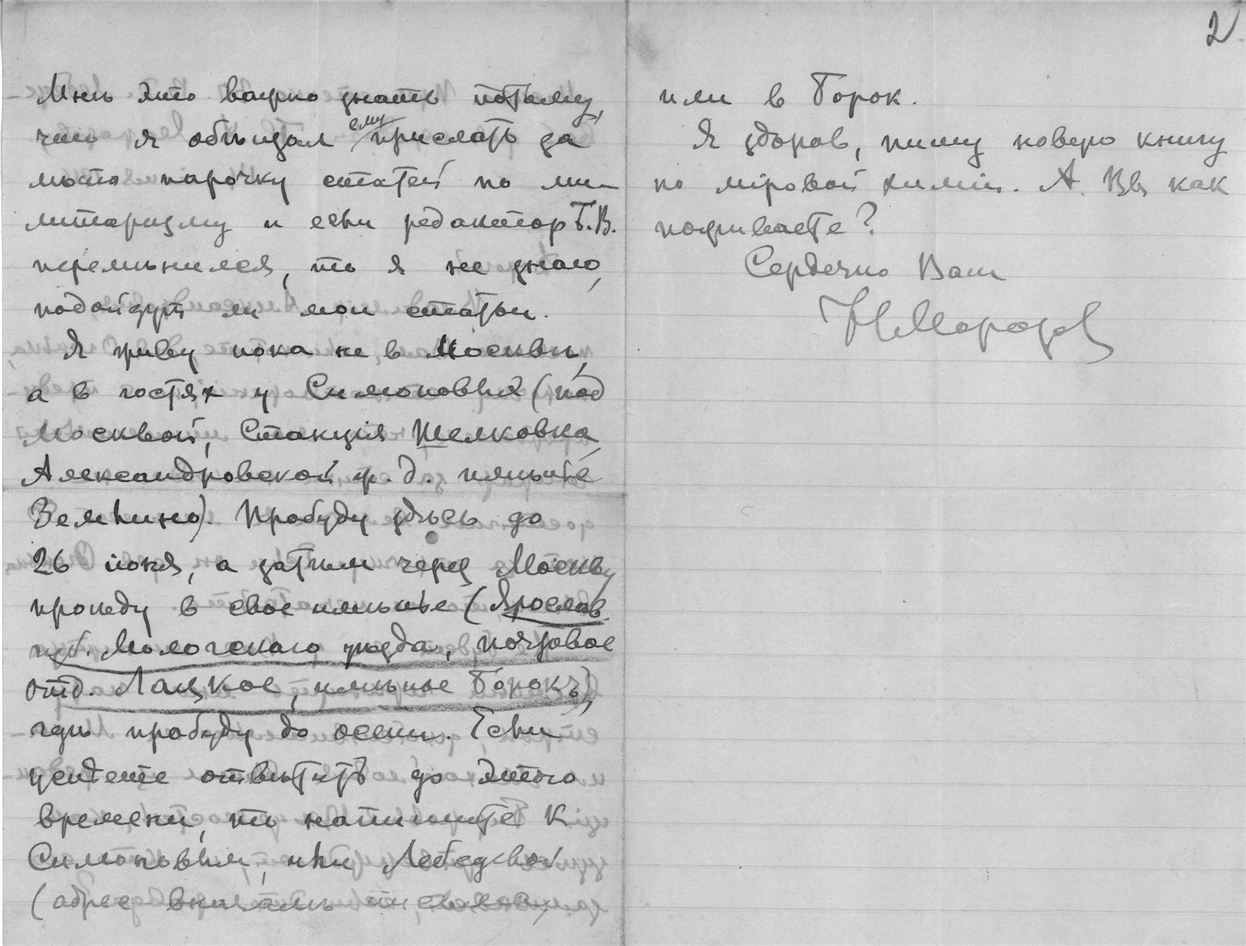 2
Мнѣ это важно знать потому,
что я обѣщал ему прислать за
мѣсто парочку статей по ми-
литаризму и если редактор Б.В.
перемѣнился, то я не знаю,
подойдут ли мои статьи.
Я живу пока не в Москвѣ,
а в гостях у Симоновых (под
Москвой, Станція Шелковка
Александровской ж. д. имѣніе
Землино). Пробуду здѣсь до
26 іюня, а затѣм через Москву
проѣду в свое имѣніе (Ярослав.
губ. Мологскаго уѣзда, почтовое
отд. Лацкое, имѣніе Борокъ)
гдѣ пробуду до осени. Если
отвѣтить до этого
времени, то напишите к
Симоновым, или Лебедевой
(адрес
или в Борок.
Я здоров, пишу новую книгу
по міровой химіи. А Вы как
поживаете?
Сердечно Ваш
Н Морозов